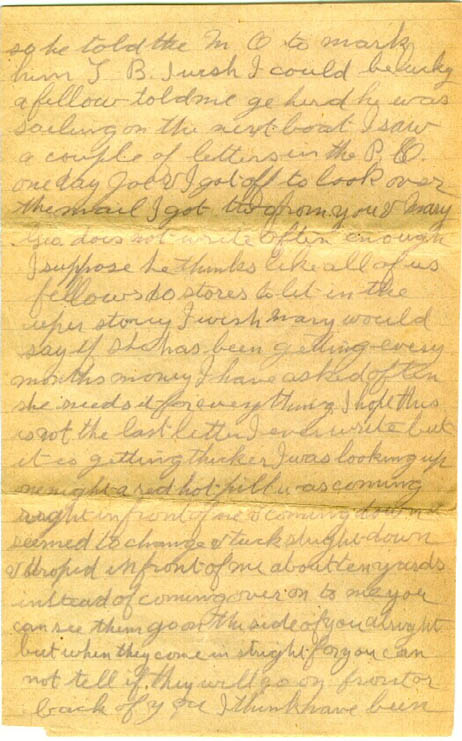 so he told the M O to mark
him T B. I wish I could be lucky
a fellow told me ge herd he was
sailing on the next boat I saw
a couple of letters in the P.O.
one day Joe & I got off to look over
the mail I got two from you & Mary
Geo does not write often enough
I suppose he thinks like all of us
fellows do stores to let in the
uper storey I wish Mary would
say if she has been getting every
months money I have asked often
she needs it for everything I hope this
is not the last letter I ever write but
it is getting thicker I was looking up
one night a red hot pill was coming
right in front of me & coming down
seemed to change & tuck stright down
& droped in front of me about ten yards
instead of coming over on to me you
can see them go on the side of you alright
but when they come in stright for you can
not tell if they will go on front or
back of you I think have been